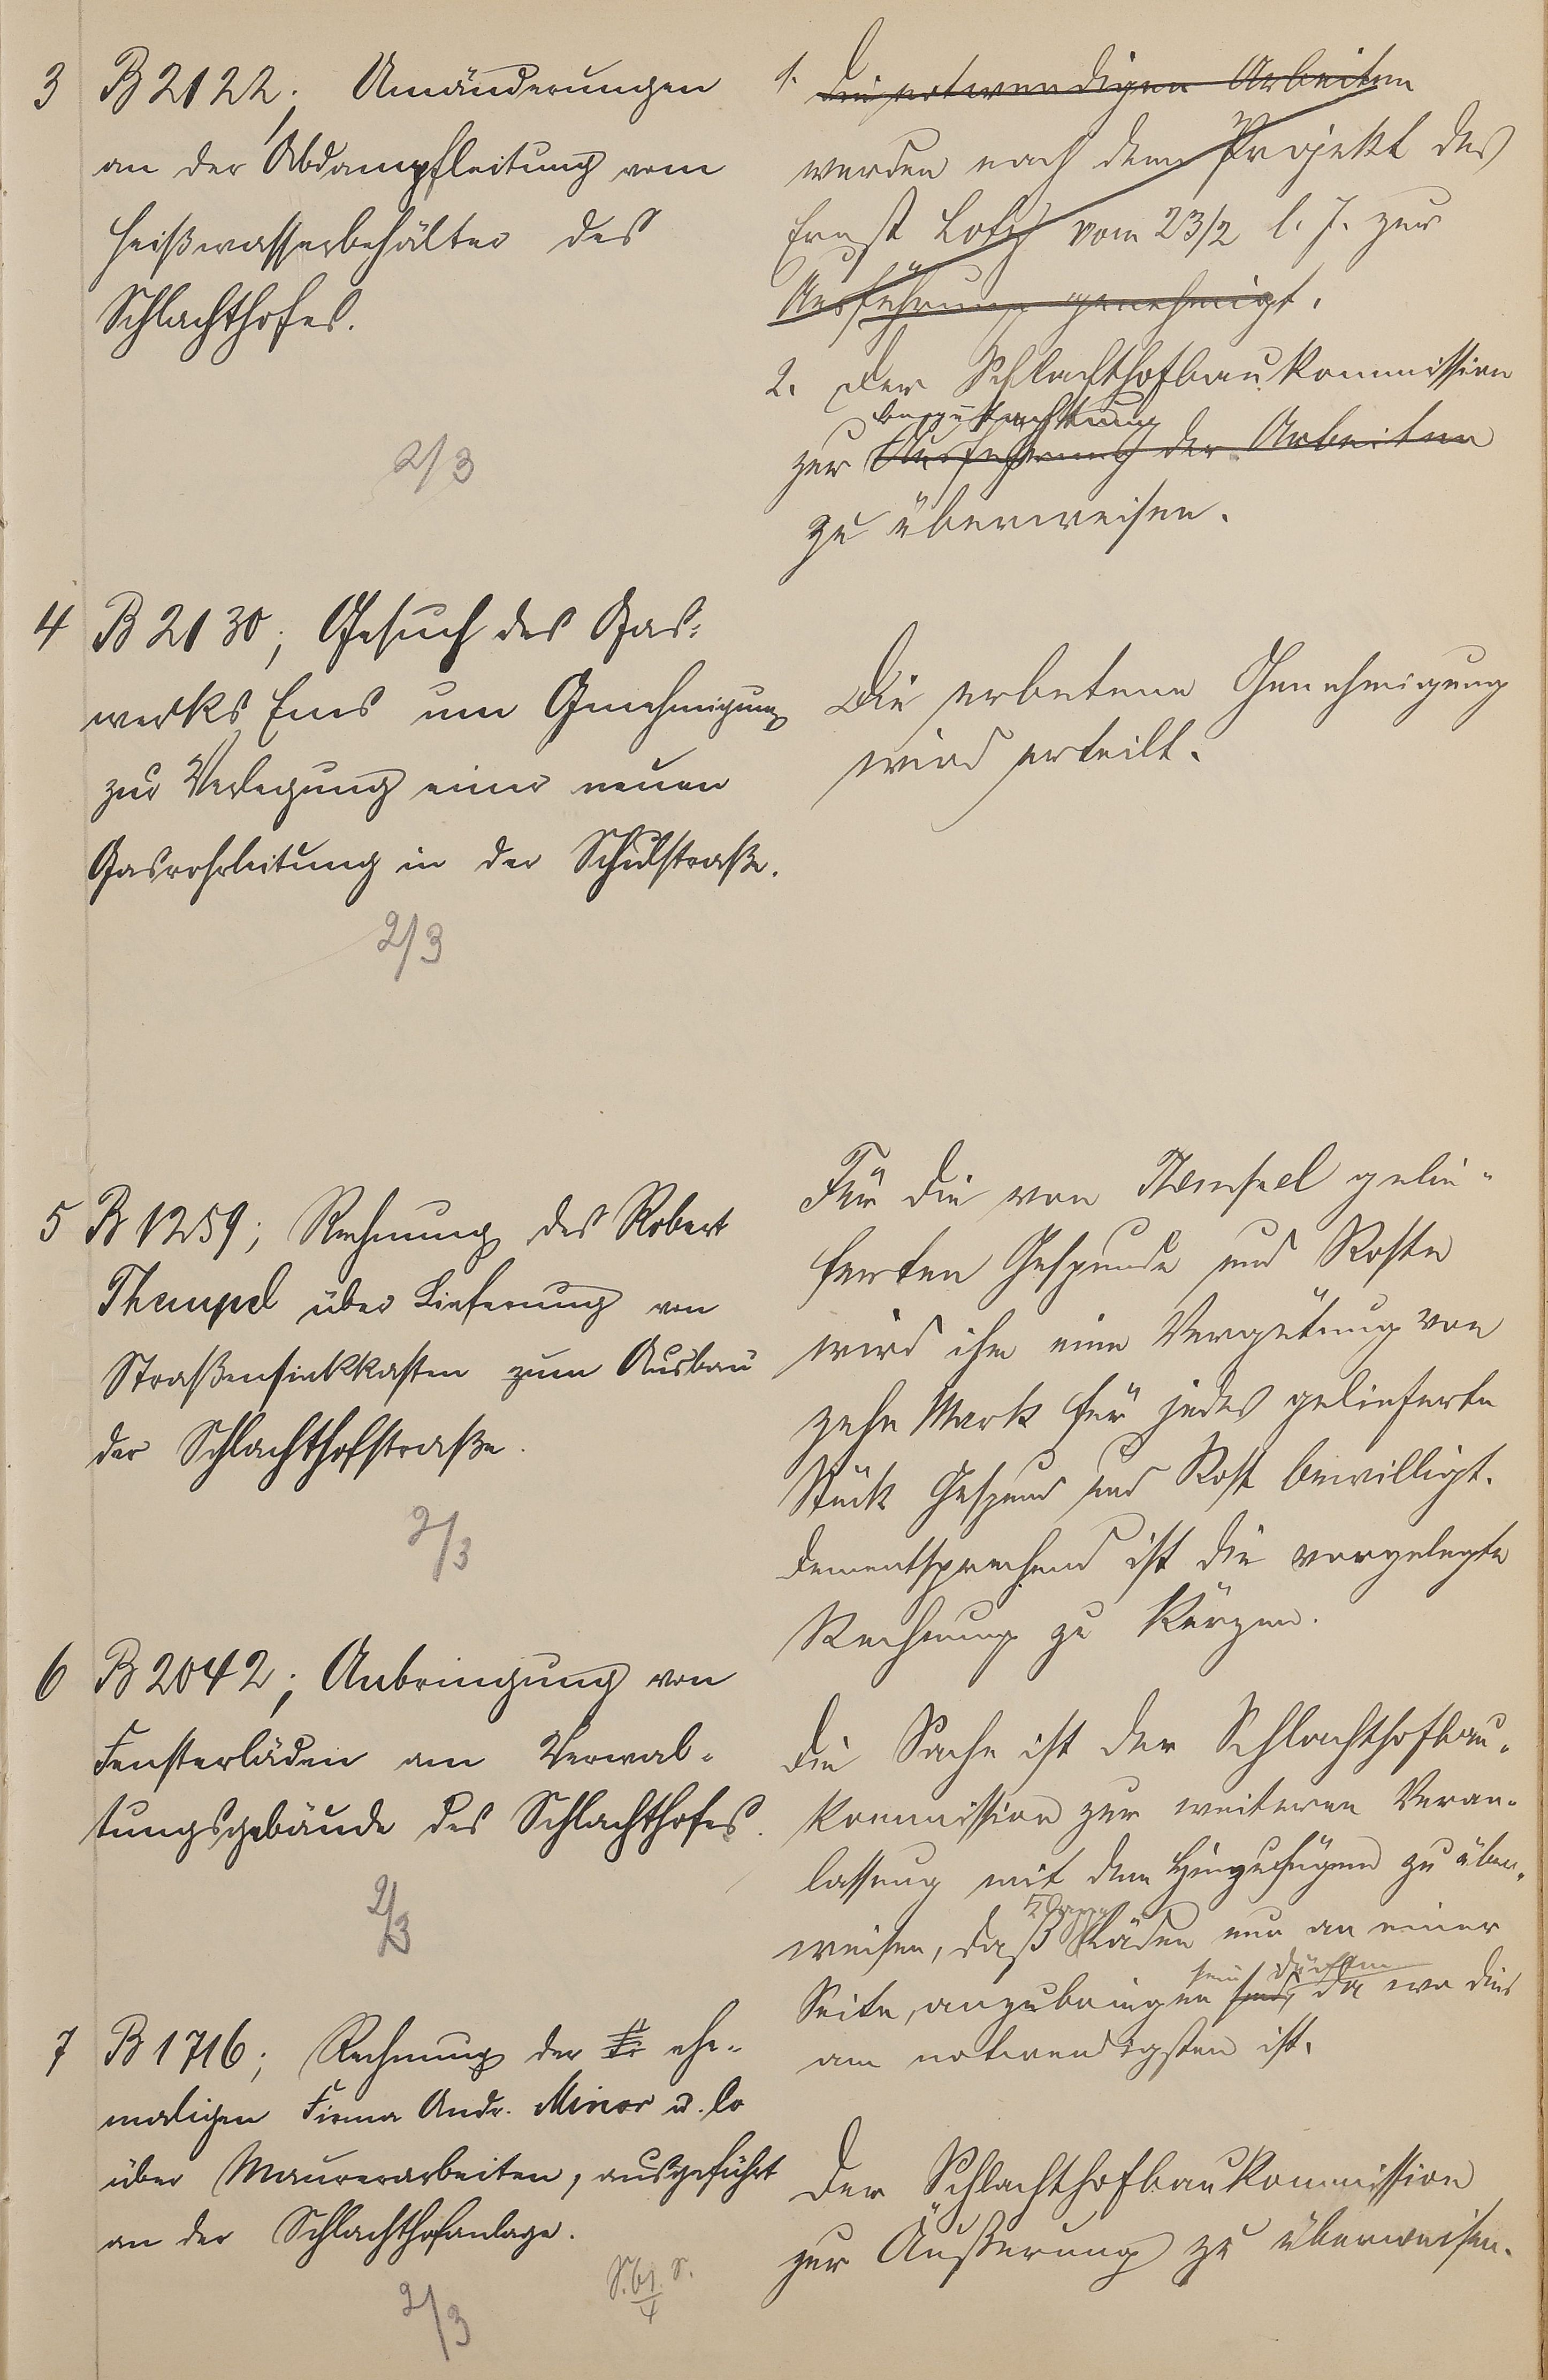 3 B 2122. Umänderungen
an der Abdampfleitung vom
Heißwasserbehälter des
Schlachthofes.
2/3
1. Die notwendigen Arbeiten
werden nach dem Projekt des
Ernst Lotz vom 23/2 l. J. zur
Ausführung genehmigt.
2. Der Schlachthofbaukommission
Begutachtung
zur Ausführung der Arbeiten
zu überweisen.
4 B 2130; Gesuch des Gas-
werks Ems um Genehmigung
zur Verlegung einer neuen
Gasrohrleitung in der Schulstraße.
2/3
Die erbetene Genehmigung
wird erteilt.
5 B 1259; Rechnung des Robert
Thempel über Lieferung von
Straßensinkkasten zum Ausbau
der Schlachthofstraße.
2/3
Für die von gelie-
ferten Gespunde und Roste
wird ihm eine Vergütung von
zehn Mark für jedes gelieferte
Stück Gespund und Rost bewilligt.
Dementsprechend ist die vorgelegte
Rechnung zu kürzen.
6 B 2042; Anbringung von
Fensterläden am Verwal-
tungsgebäude des Schlachthofes.
2/3
Die Sache ist der Schlachthofbau-
kommission zur weiteren Veran-
lassung mit dem Hinzufügen zu über-
Klapp
weisen, daß Läden nur an einer
sein dürften
Seite, anzubringen sind, da wo dies
am notwendigsten ist.
7 B 1716; Rechnung der Fi ehe-
maligen Firma Andr. Minor u. Co
über Maurerarbeiten, ausgeführt
an der Schlachthofanlage.
2/3
Der Schlachthofbaukommission
zur Äußerung zu überweisen.